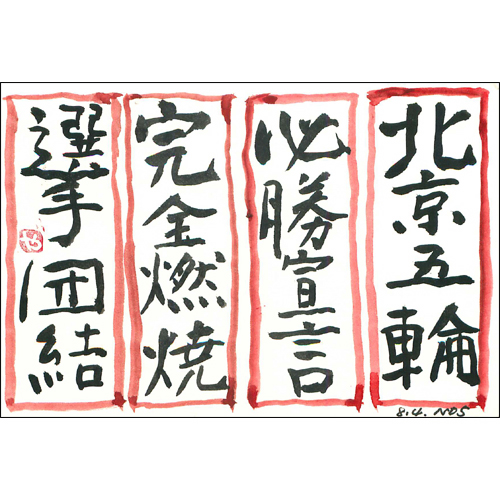 北京五輪
必勝宣言
完全燃焼
選手団結
8.4. NOS